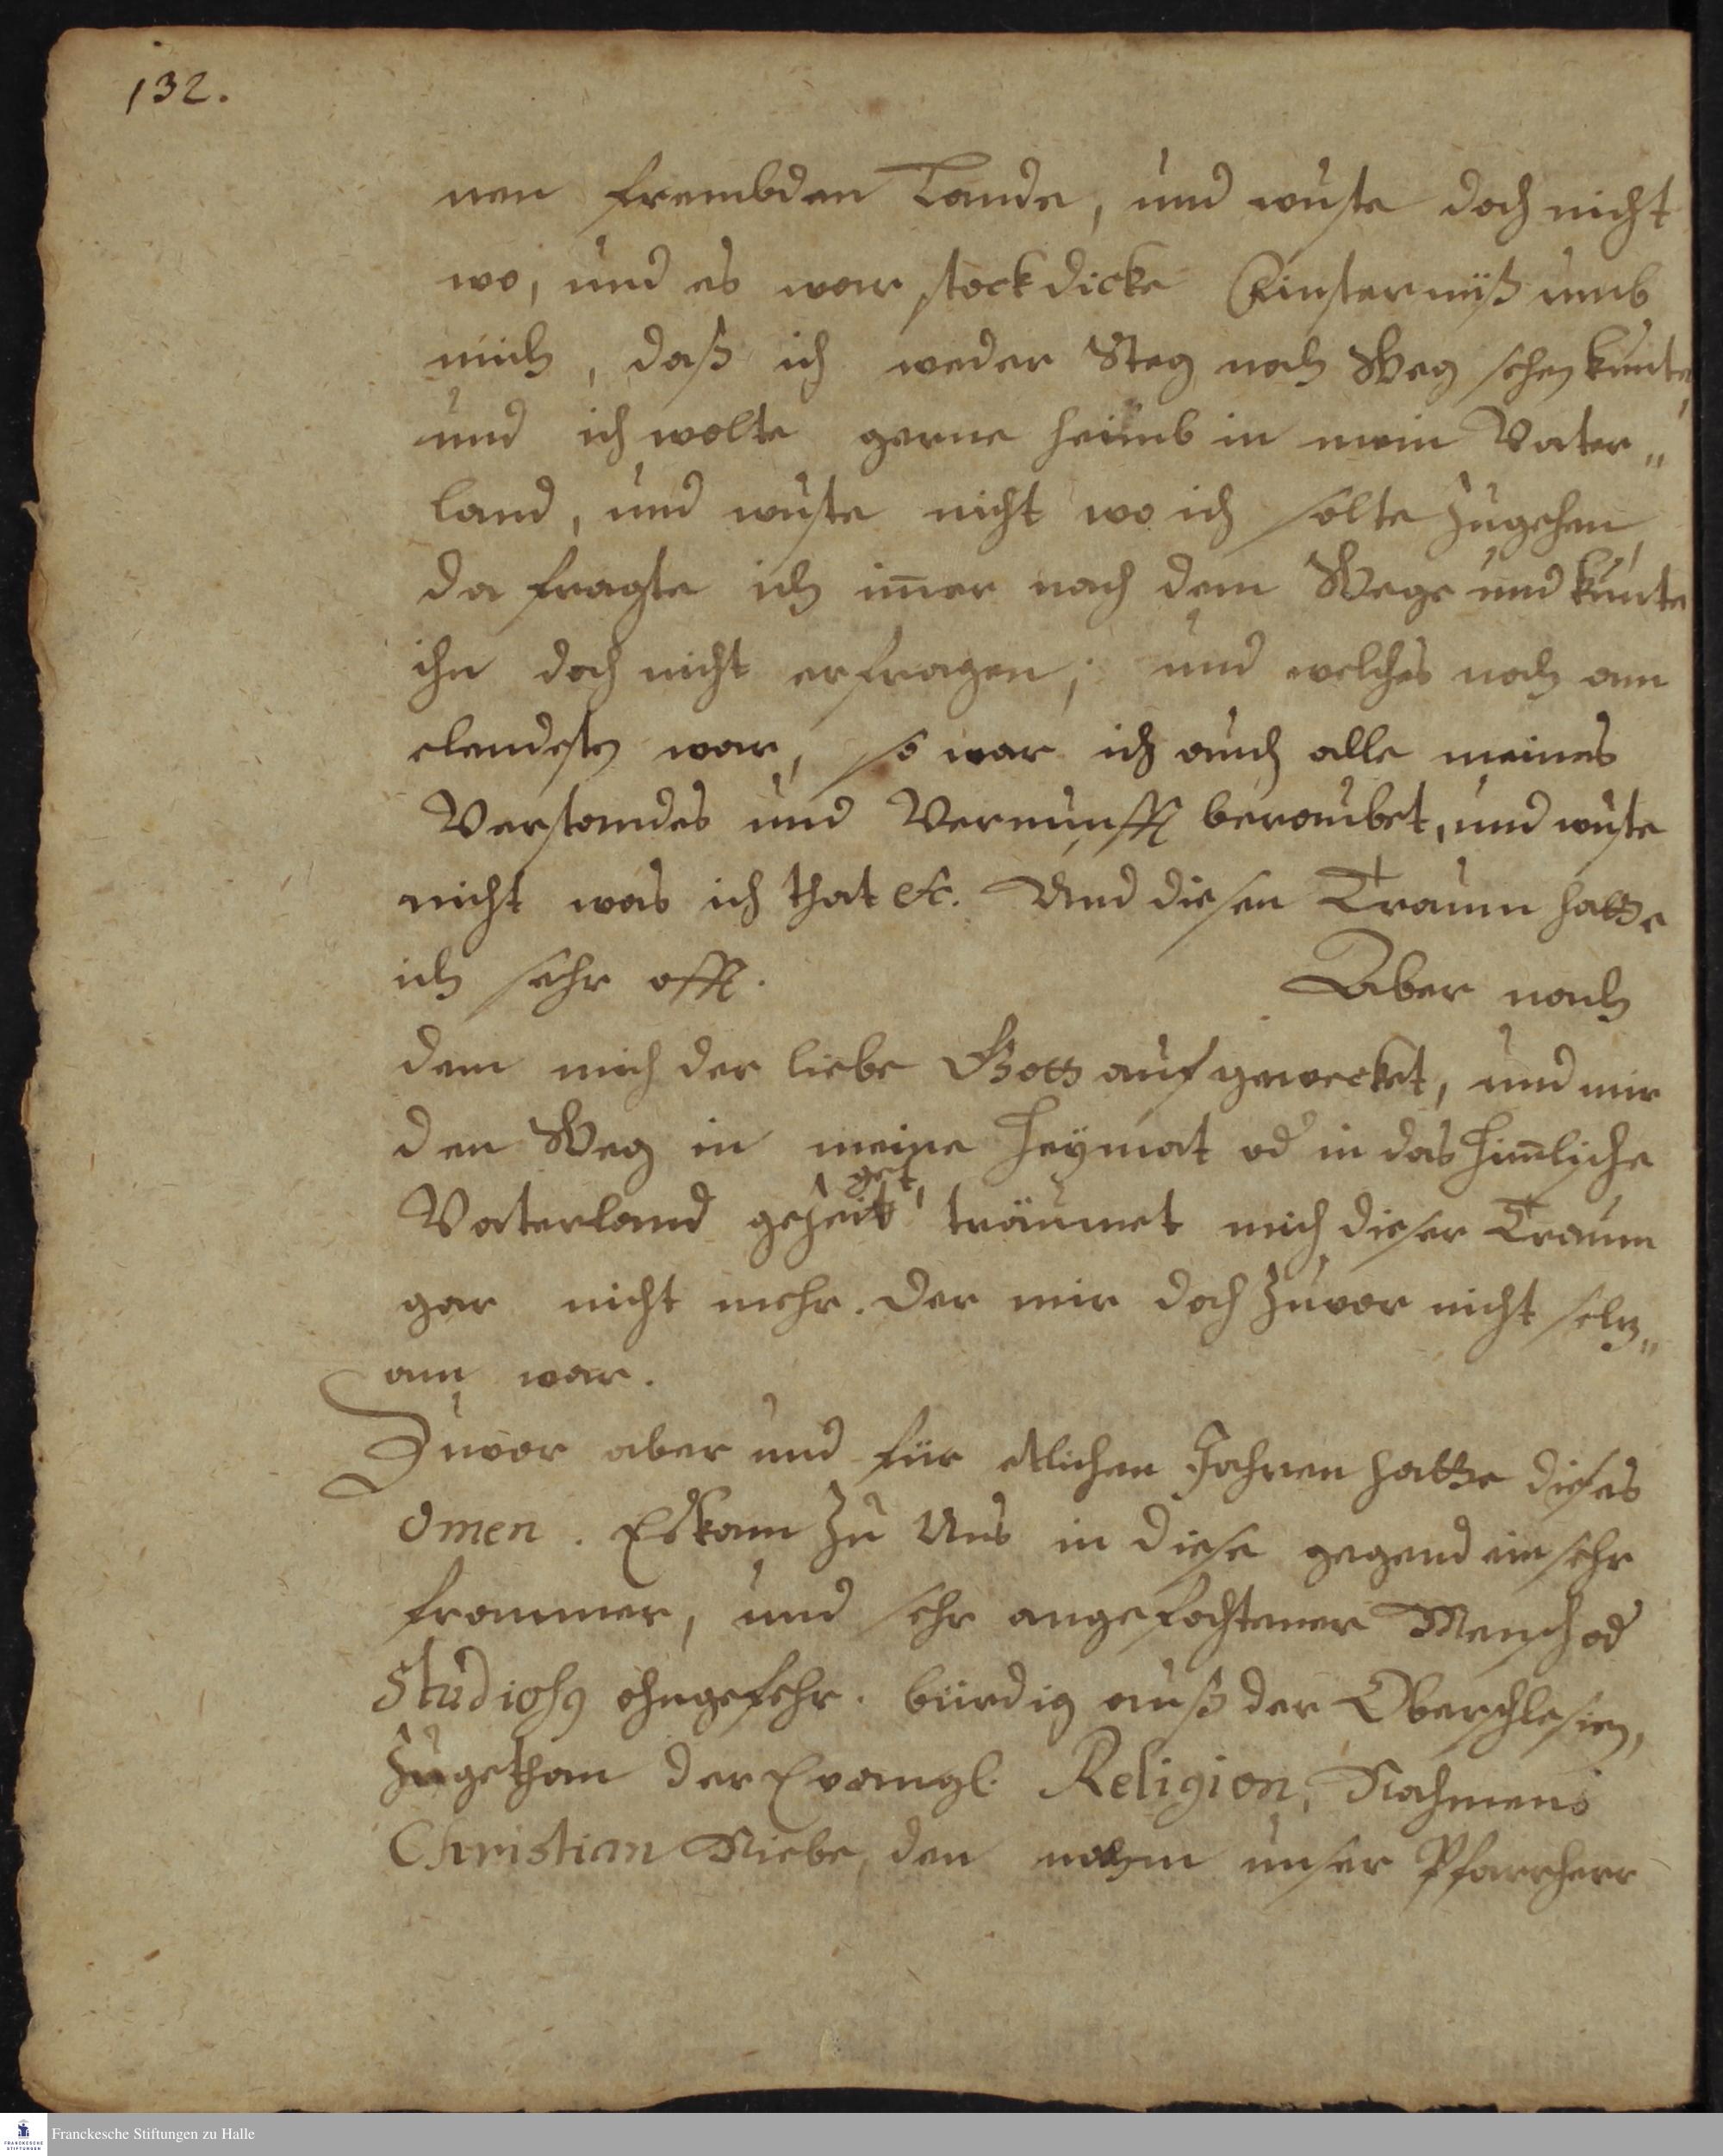 132.
nen frembden Lande, und wuste doch nicht
wo, und es war stockdicke Finsternüß umb
mich, daß ich weder Steg noch Weg sehen kunte,
und ich wolte gerne heimb in mein Vater„
land, und wuste nicht wo ich solte zugehen,
da fragte ich im̄er nach dem Wege und kunte
ihn doch nicht erfragen; und welches noch am
elendesten war, so war ich auch alle meines
Verstandes und Vernunfft beraubet, und wuste
nicht was ich that etc. Und diesen Traum hatte
ich sehr offt. Aber nach
dem mich der liebe Gott aufgewecket, und mir
den Weg in meine Heymat od in das Him̄liche
Vaterland gezeiget, träumet mich dieser Traum
gar nicht mehr. der mir doch zuvor nicht seltz„
am war.
Zuvor aber und für etlichen Jahren hatte dieses
Omen. Es kam zu Uns in diese gegend ein sehr
frommer, und sehr angefochtener Mensch od
Studiosus ohngefehr. bürdig auß der Oberschlesien,
zugethan der Evangl. Religion, Nahmens
Christian Niebe, den unser Pfarrherr
Franckesche Stiftungen zu Halle